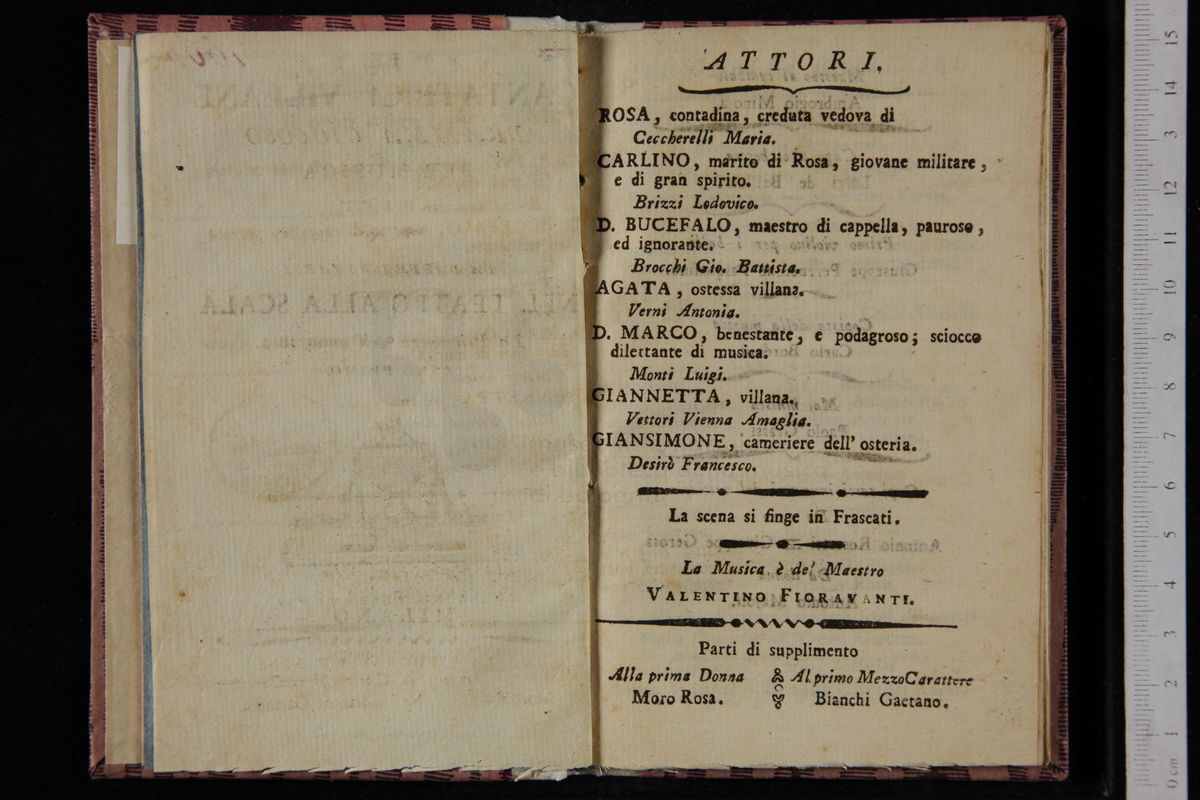 ATTORI.
ROSA, contadina, creduta vedova di
Ceccherelli Maria.
CARLINO, marito di Rosa, giovane militare,
e di gran spirito.
Brizzi Lodovico.
D. BUCEFALO, maestro di cappella, pauroso,
ed ignorante.
Brocchi Gio. Battista.
AGATA, ostessa villana.
Verni Antonia.
D. MARCO, benestante, e podagroso; sciocco
dilettante di musica.
Monti Luigi.
GIANNETTA, villana.
Vettori Vienna Amaglia.
GIANSIMONE, cameriere dell' osteria.
Desirò Francesco.
La scena si finge in Frascati.
La Musica è del Maestro
VALENTINO FIORAVANTI.
Parti di supplimento
Alla prima Donna
Moro Rosa.
Al primo Mezzo Carattere
Bianchi Gaetano.
15
14
13
12
11
10
9
8
7
6
5
4
3
2
1
0 cm